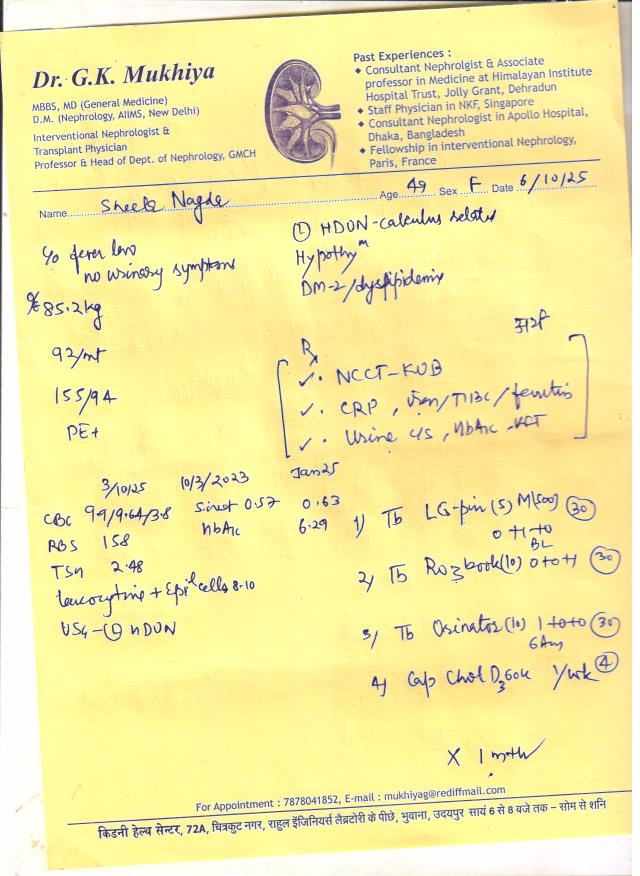 Dr. G.K. Mukhiya
MBBS, MD (General Medicine)
D.M. (Nephrology, AIIMS, New Delhi)
Interventional Nephrologist &
Transplant Physician
Professor & Head of Dept. of Nephrology, GMCH
Past Experiences :
◆ Consultant Nephrolgist & Associate
professor in Medicine at Himalayan Institute
Hospital Trust, Jolly Grant, Dehradun
◆ Staff Physician in NKF, Singapore
◆ Consultant Nephrologist in Apollo Hospital,
Dhaka, Bangladesh
◆ Fellowship in interventional Nephrology,
Paris, France
Name Sheela Nagda Age 49 Sex F Date 6/10/25
c/o fever
no urinary symptoms
O/E 85.2kg
92/mt
155/94
PE+
Ⓛ HDUN-calculus related
Hypothy
DM-2/dyslipidemia
Rx
✓. NCCT-KUB
✓. CRP, iron/TIBC/ferritin
✓. Urine c/s, HbA1c
3/10/25 10/3/2023 Jan25
CBC 99/9.64/3.8 0.57 0.63
RBS 158 HbA1c 6.29
TSH 2.48
leucocytes + Epi cells 8-10
USG-Ⓛ HDUN
1) Tb LG-pin(5) M(500) 30
0+1+0
BL
2) Tb (10) 0+0+1 30
3) Tb (10) 1+0+0 30
6Am
4) Cap Chol D3 60k 1/wk 4
X 1 month
For Appointment : 7878041852, E-mail : mukhiyag@rediffmail.com
किडनी हेल्थ सेन्टर, 72A, चित्रकुट नगर, राहुल इंजिनियर्स लैब्रटोरी के पीछे, भुवाना, उदयपुर सायं 6 से 8 बजे तक – सोम से शनि